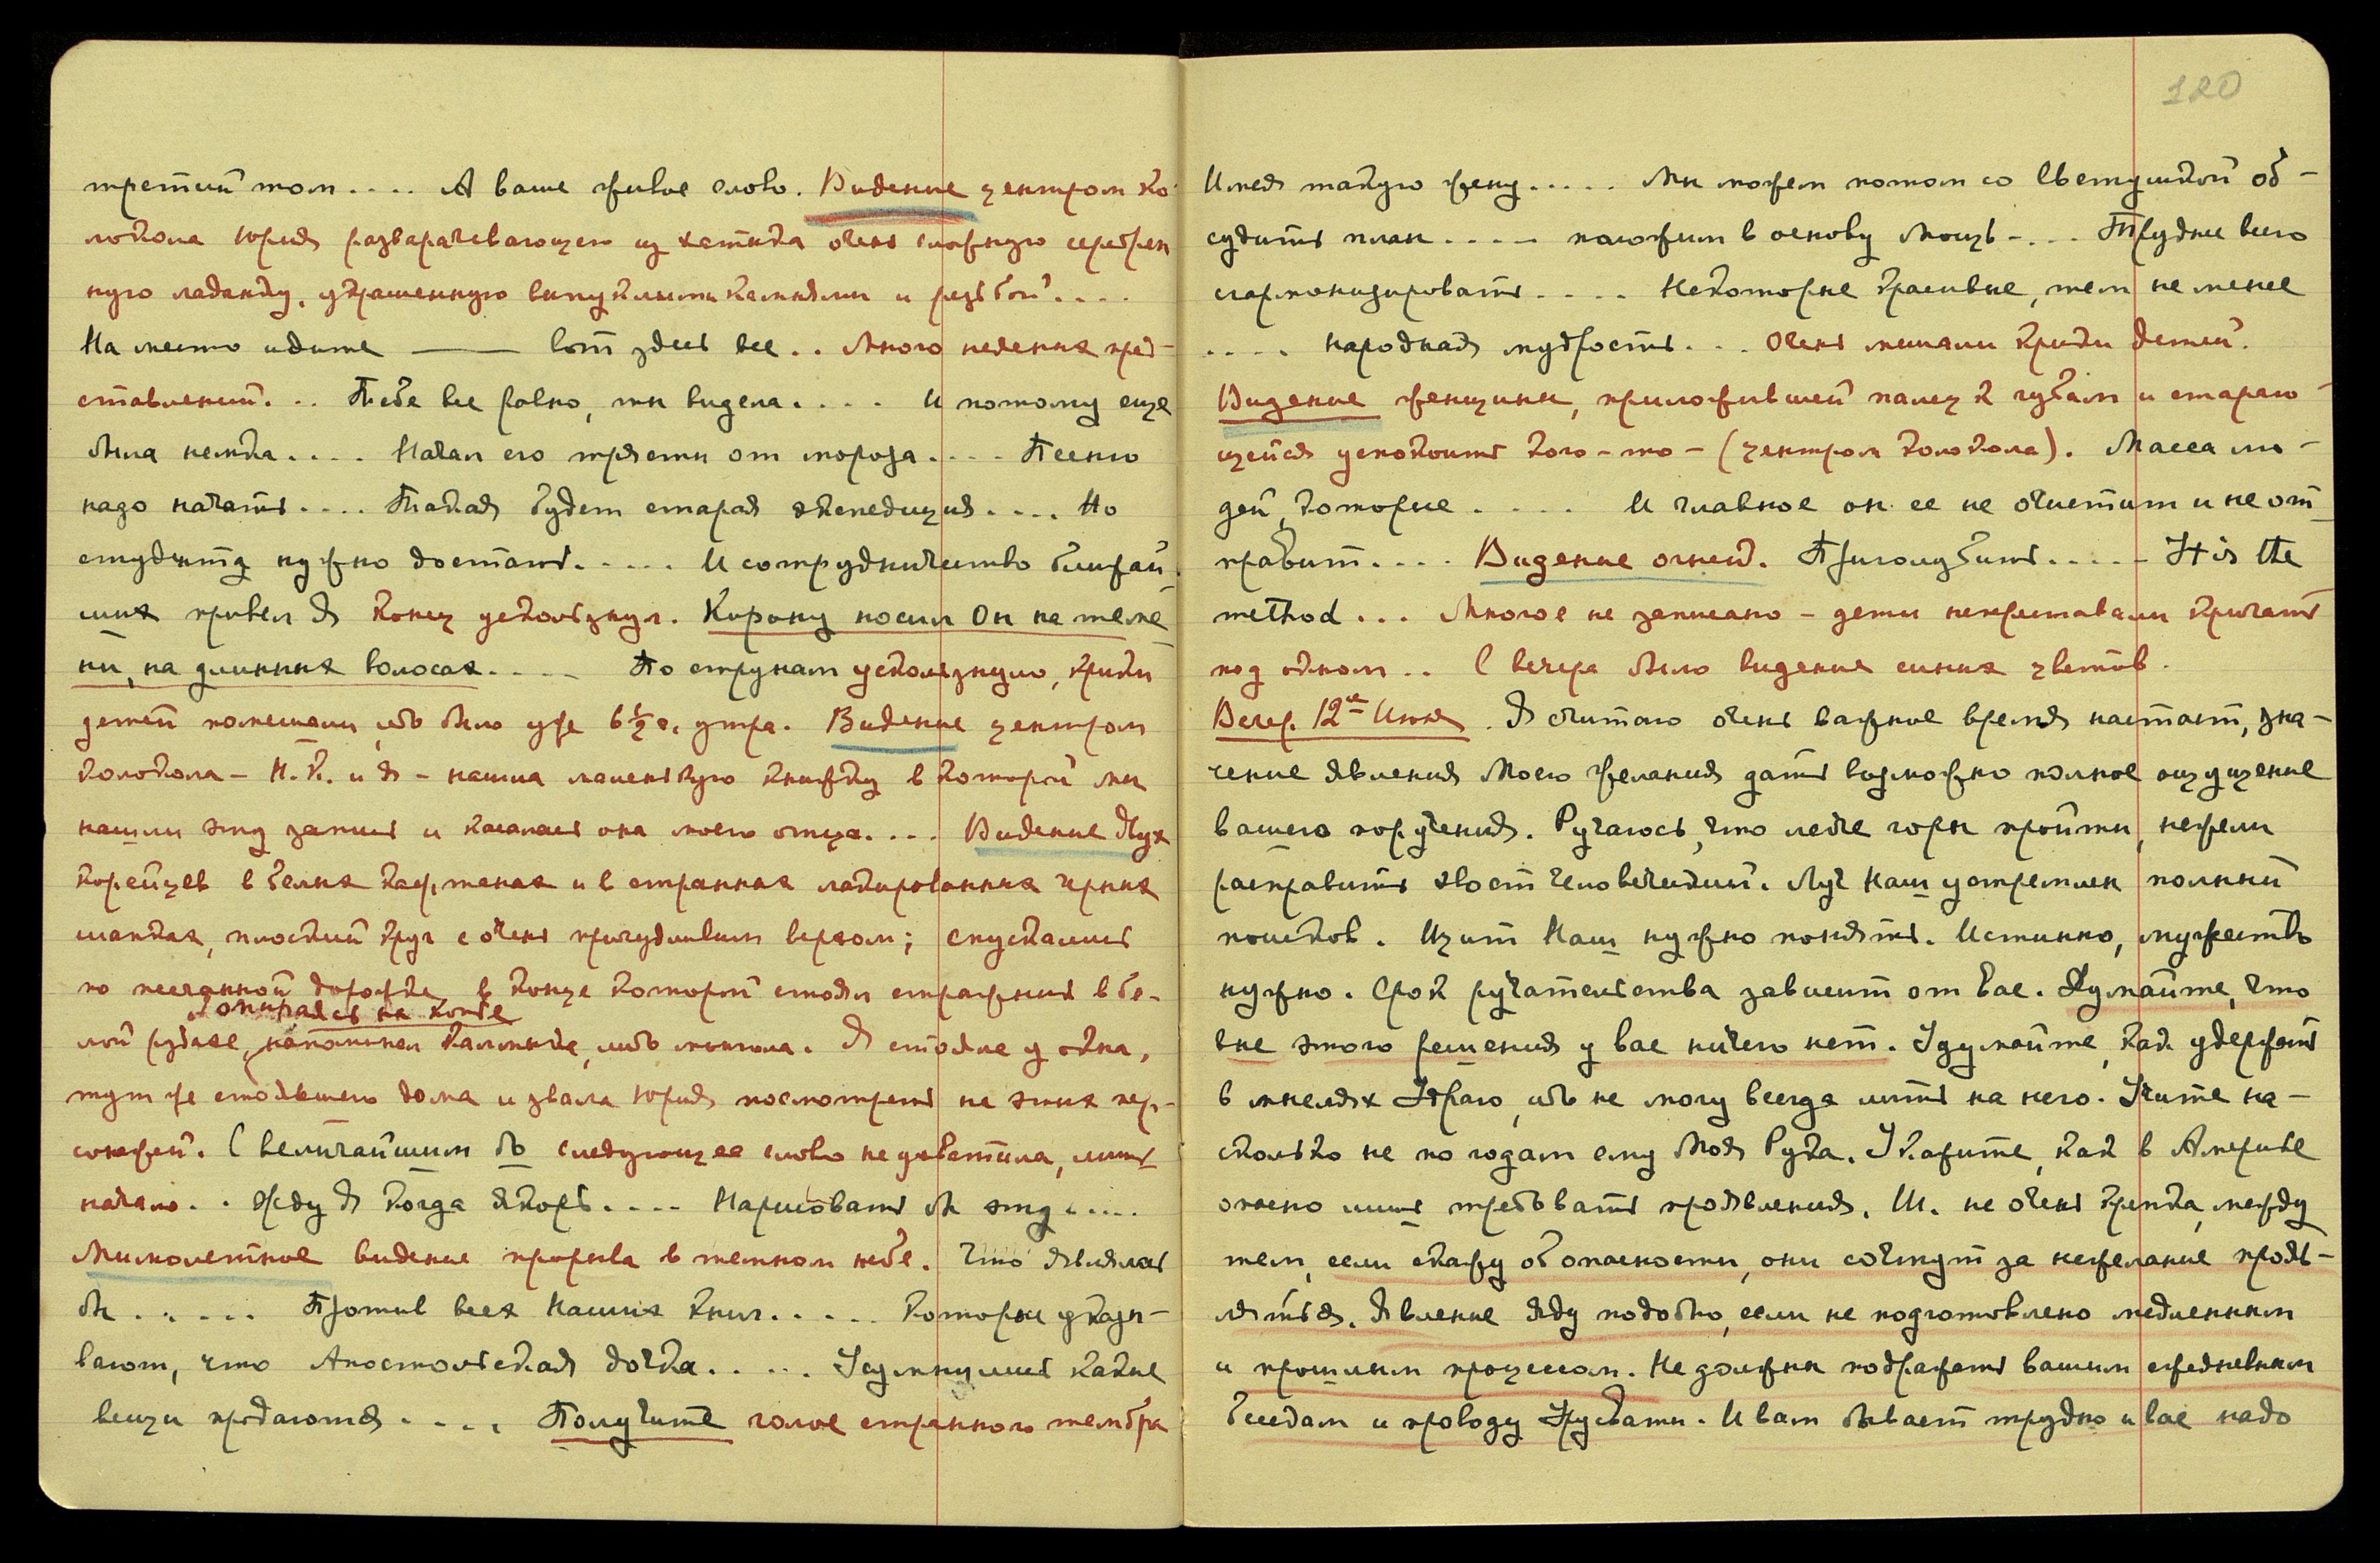 третий том.... А ваше живое слово. Видение центром ко-
локола Юрия разварачевающего из хатыка очень сложную серебрен
ную ладанку, украшенную выпуклыми камнями и резьбой....
На место идите —— вот здесь все.. Много неясных пред-
ставлений... Тебе все равно, ты видела.... И потому еще
была немка.... Начал его трясти от мороза.... Песню
надо начать.... Такая будет старая экспедиция.... Но
студента нужно достать..... И сотрудничество ближай
ших привел я конец ускользнул. Корону носил Он на теме-
ни, на длинных волосах.... По струнам ускользнуло, крики
детей помешали, ибо было уже 6½ ч. утра. Видение центром
колокола – Н.К. и я – нашла маленькую книжку в которой мы
нашли эту запись и касалась она моего отца.... Видение двух
корейцев в белых кафтанах и в странных лакированных черных
шапках, плоский круг с очень причудливым верхом; спускались
по песчанной дорожке, в конце которой стоял стражник в бе-
опираясь на копье
лой рубахе, напоминал калмыка, либо монгола. Я стояла у окна,
тут же стоявшего дома и звала Юрия посмотреть на этих пер-
сонажей. С величайшим бо следующее слово не уловила, лишь
начало.. Жду я когда якорь.... Нарисовать бы эту.....
Мимолетное видение прорыва в темном небе. Что являлась
бы..... Против всех Наших книг..... которые указы-
вают, что Апостольская дочка..... Усумнились какие
вещи продаются.... Получите голос странного тембра
120
Имея такую жену..... Мы можем потом со Светушкой об-
судить план.... положим в основу Мощь.... Труднее всего
сгармонизировать.... Некоторые красивые, тем не менее
.... народная мудрость... Очень мешали крики детей.
Видение женщины, приложившей палец к губам и стараю-
щейся успокоить кого-то – (центром колокола). Масса лю-
дей, которые .... И главное он ее не очистит и не от
правит.... Видение огней. Приголубить..... It is the
method... Многое не записано – дети непереставали кричать
под окном.. С вечера было видение синих цветов.
Вечер. 12ое Июня. Я считаю очень важное время настает, зна-
чение явления Моего желания дать возможно полное ощущение
вашего поручения. Ручаюсь, что легче горы пройти, нежели
расправить хвост человеческий. Луч Наш устремлен полный
поисков. Щит Наш нужно понять. Истинно, мужество
нужно. Срок ручательства зависит от вас. Думайте, что
вне этого решения у вас ничего нет. Удумайте, как удержать
в мыслях Удраю, ибо не могу всегда лить на него. Учите на-
сколько не по годам ему Моя Рука. Укажите, как в Америке
опасно лишь требовать проявления. Ш. не очень крепка, между
тем, если скажу об опасности, они сочтут за нежелание прояв-
ляться. Явление яду подобно, если не подготовлено медленным
и прошлым процессом. Не должны подражать вашим ежедневным
беседам и проводу Урусвати. И вам бывает трудно и вас надо